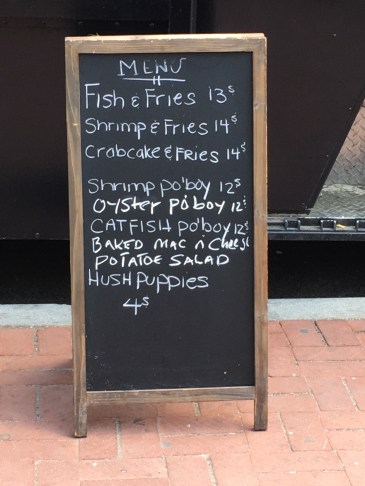 MENU
Fish & Fries 13$
Shrimp & Fries 14$
Crabcake & FRIES 14$
Shrimp po'boy 12$
OYSTER po'boy 12$
CATFISH po'boy 12$
BAKED MAC n' Cheese
POTATOE SALAD
HUSH PUPPIES
4$